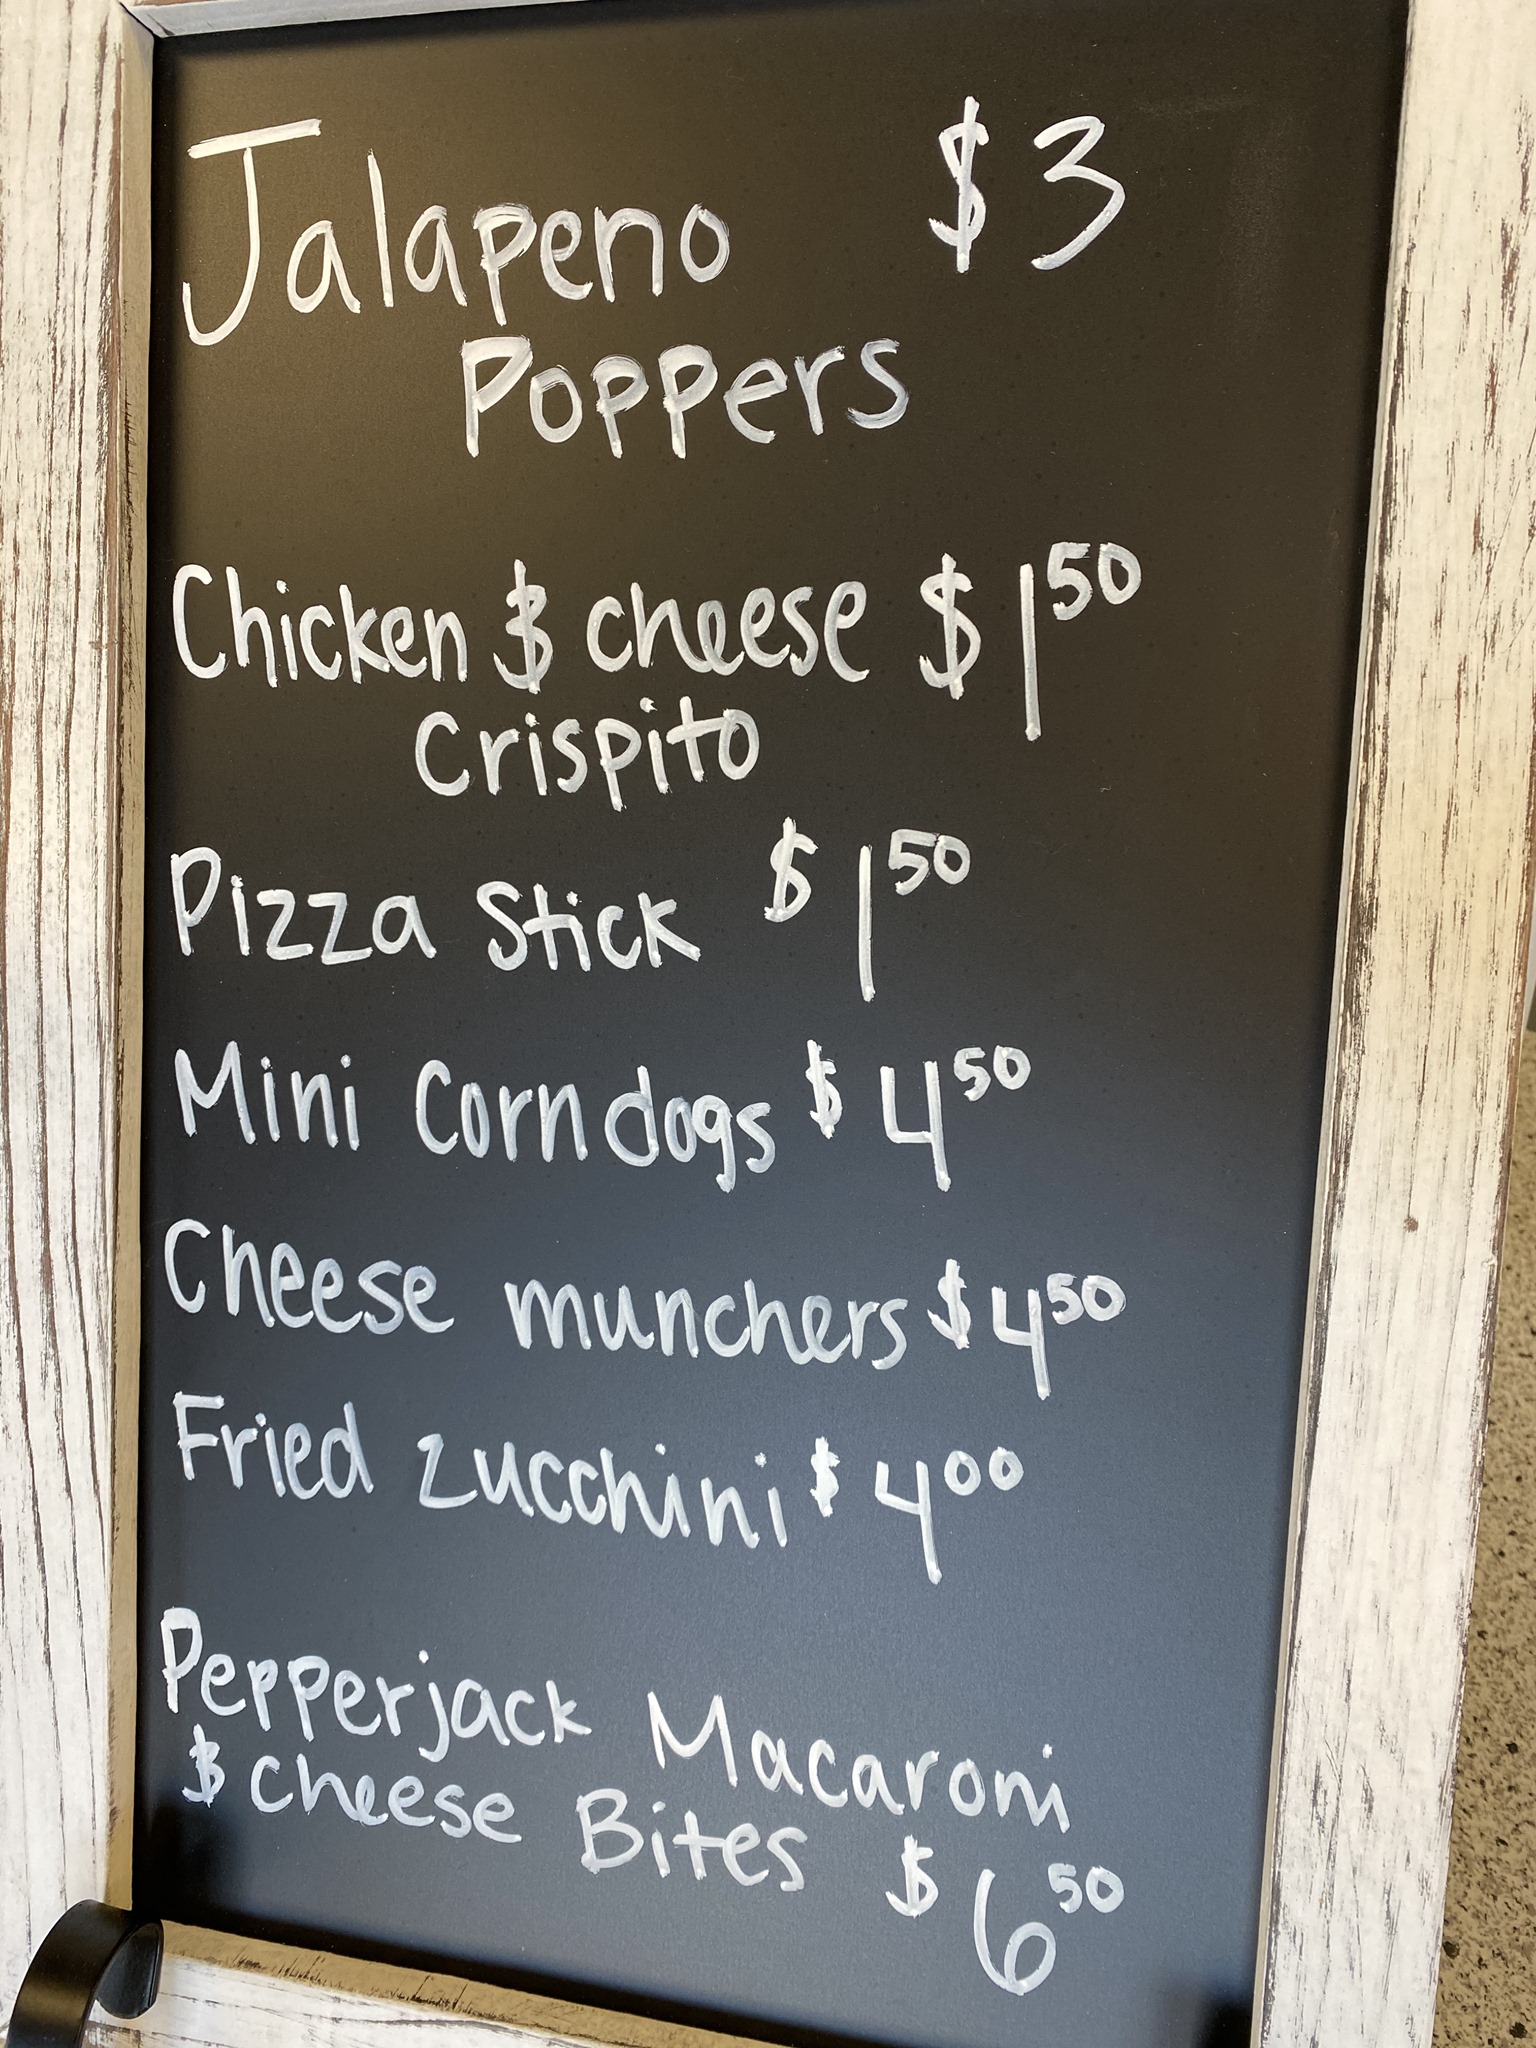 Jalapeno $3
Poppers
Chicken $ cheese $1.50
Crispito
Pizza Stick $1.50
Mini Corndogs $4.50
Cheese munchers $4.50
Fried zucchini $4.00
Pepperjack Macaroni
$ cheese Bites $6.50